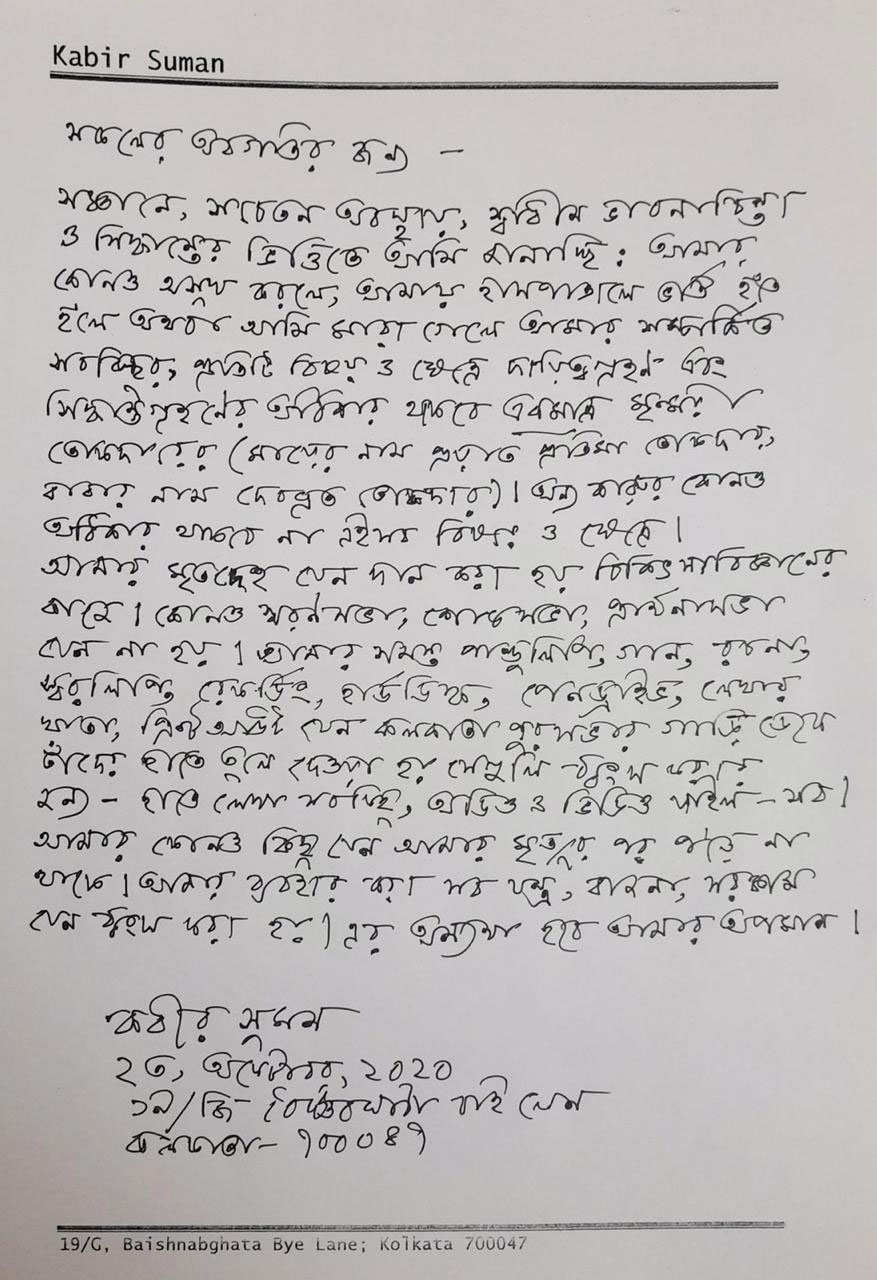 Kabir Suman
সকলের অবগতির জন্য –
সজ্ঞানে, সচেতন অবস্থায়, স্বাধীন ভাবনাচিন্তা
ও সিদ্ধান্তের ভিত্তিতে আমি জানাচ্ছি : আমার
কোনও অসুখ করলে, আমায় হাসপাতালে ভর্তি হতে
হলে অথবা আমি মারা গেলে আমার সম্পর্কিত
সবকিছুর, প্রতিটি বিষয় ও ক্ষেত্রে দায়িত্বগ্রহণ এবং
সিদ্ধান্তগ্রহণের অধিকার থাকবে একমাত্র মৃন্ময়ী
তোকদারের (মায়ের নাম প্রয়াত প্রতিমা তোকদার,
বাবার নাম দেবব্রত তোকদার)। অন্য কারুর কোনও
অধিকার থাকবে না এইসব বিষয় ও ক্ষেত্রে।
আমার মৃতদেহ যেন দান করা হয় চিকিৎসাবিজ্ঞানের
কাজে। কোনও স্মরণসভা, শোকসভা, প্রার্থনাসভা
যেন না হয়। আমার সমস্ত পাণ্ডুলিপি, গান, রচনা,
স্বরলিপি, রেকর্ডিং, হার্ডডিস্ক, পেনড্রাইভ, লেখার
খাতা, প্রিন্ট আউট যেন কলকাতা পুরসভার গাড়ি ডেকে
তাঁদের হাতে তুলে দেওয়া হয় সেগুলি ধ্বংস করার
জন্য – হাতে লেখা সবকিছু, অডিও ও ভিডিও ফাইল – সব।
আমার কোনও কিছু যেন আমার মৃত্যুর পর পড়ে না
থাকে। আমার ব্যবহার করা সব যন্ত্র, বাজনা, সরঞ্জাম
যেন ধ্বংস করা হয়। এর অন্যথা হবে আমার অপমান।
কবীর সুমন
২৩, অক্টোবর, ২০২০
১৯/জি বৈষ্ণবঘাটা বাই লেন
কলকাতা – ৭০০০৪৭
19/G, Baishnabghata Bye Lane; Kolkata 700047